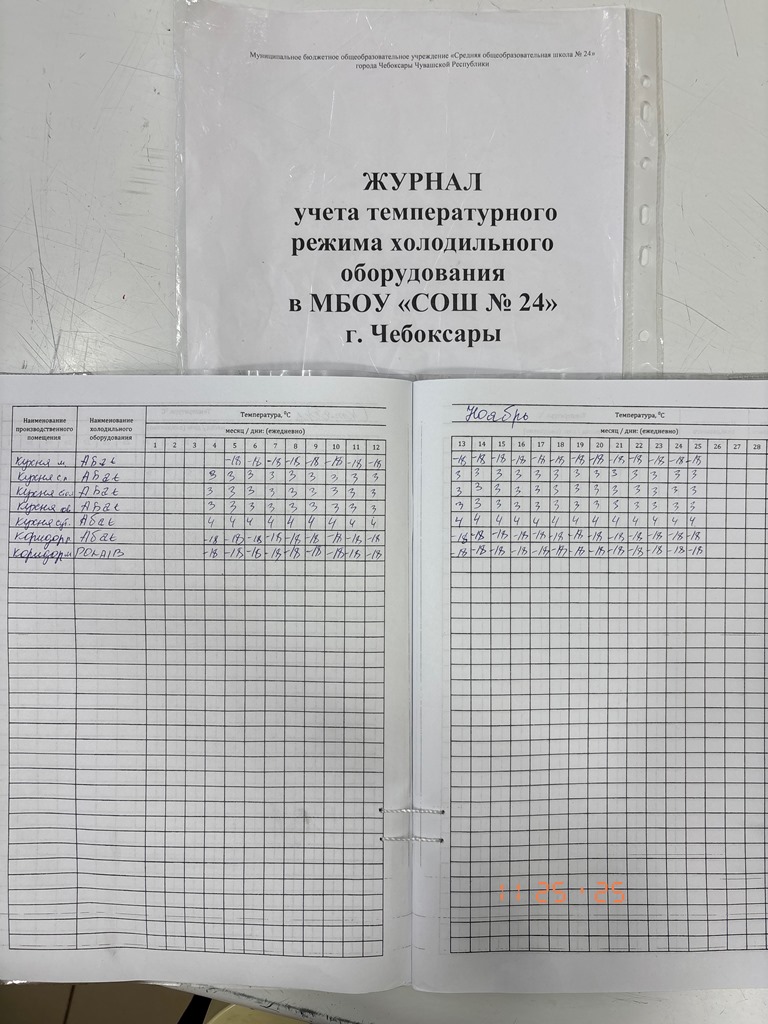 Муниципальное бюджетное общеобразовательное учреждение «Средняя общеобразовательная школа № 24»
города Чебоксары Чувашской Республики
ЖУРНАЛ
учета температурного
режима холодильного
оборудования
в МБОУ «СОШ № 24»
г. Чебоксары
Наименование производственного помещения
Наименование холодильного оборудования
Температура, ⁰С
месяц / дни: (ежедневно)
1 2 3 4 5 6 7 8 9 10 11 12
Кухня м. Абат -18 -18 -18 -18 -18 -18 -18 -18
Кухня Абат 3 3 3 3 3 3 3 3 3
Кухня Абат 3 3 3 3 3 3 3 3 3
Кухня Абат 3 3 3 3 3 3 3 3 3
Кухня Абат 4 4 4 4 4 4 4 4 4
Коридор Абат -18 -18 -18 -18 -18 -18 -18 -18 -18
Коридор POLAIR -18 -18 -18 -18 -18 -18 -18 -18 -18
Ноябрь Температура, ⁰С
месяц / дни: (ежедневно)
13 14 15 16 17 18 19 20 21 22 23 24 25 26 27 28
-18 -18 -18 -18 -18 -18 -18 -18 -18 -18 -18 -18 -18
3 3 3 3 3 3 3 3 3 3 3 3 3
3 3 3 3 3 3 3 3 3 3 3 3 3
3 3 3 3 3 3 3 3 3 3 3 3 3
4 4 4 4 4 4 4 4 4 4 4 4 4
-18 -18 -18 -18 -18 -18 -18 -18 -18 -18 -18 -18 -18
-18 -18 -18 -18 -18 -18 -18 -18 -18 -18 -18 -18 -18
11 25 '25